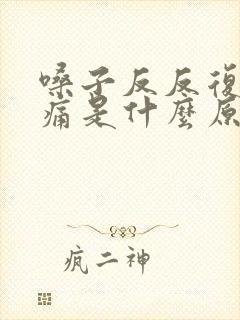 嗓子反反復
痛是什麼原
疯二神